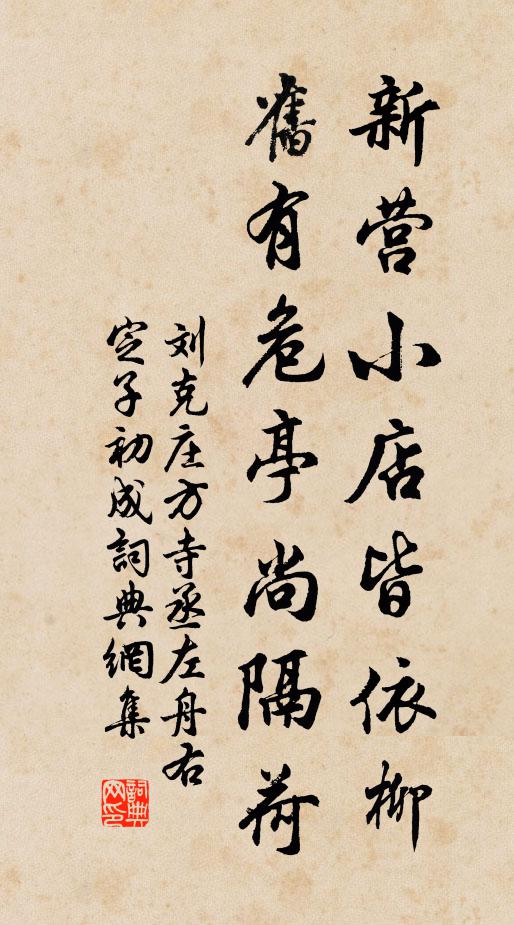 新营小店皆依柳
舊有危亭尚隔荷
刘克庄方寺丞左舟右
定子初成詞典網集
詞典
网印